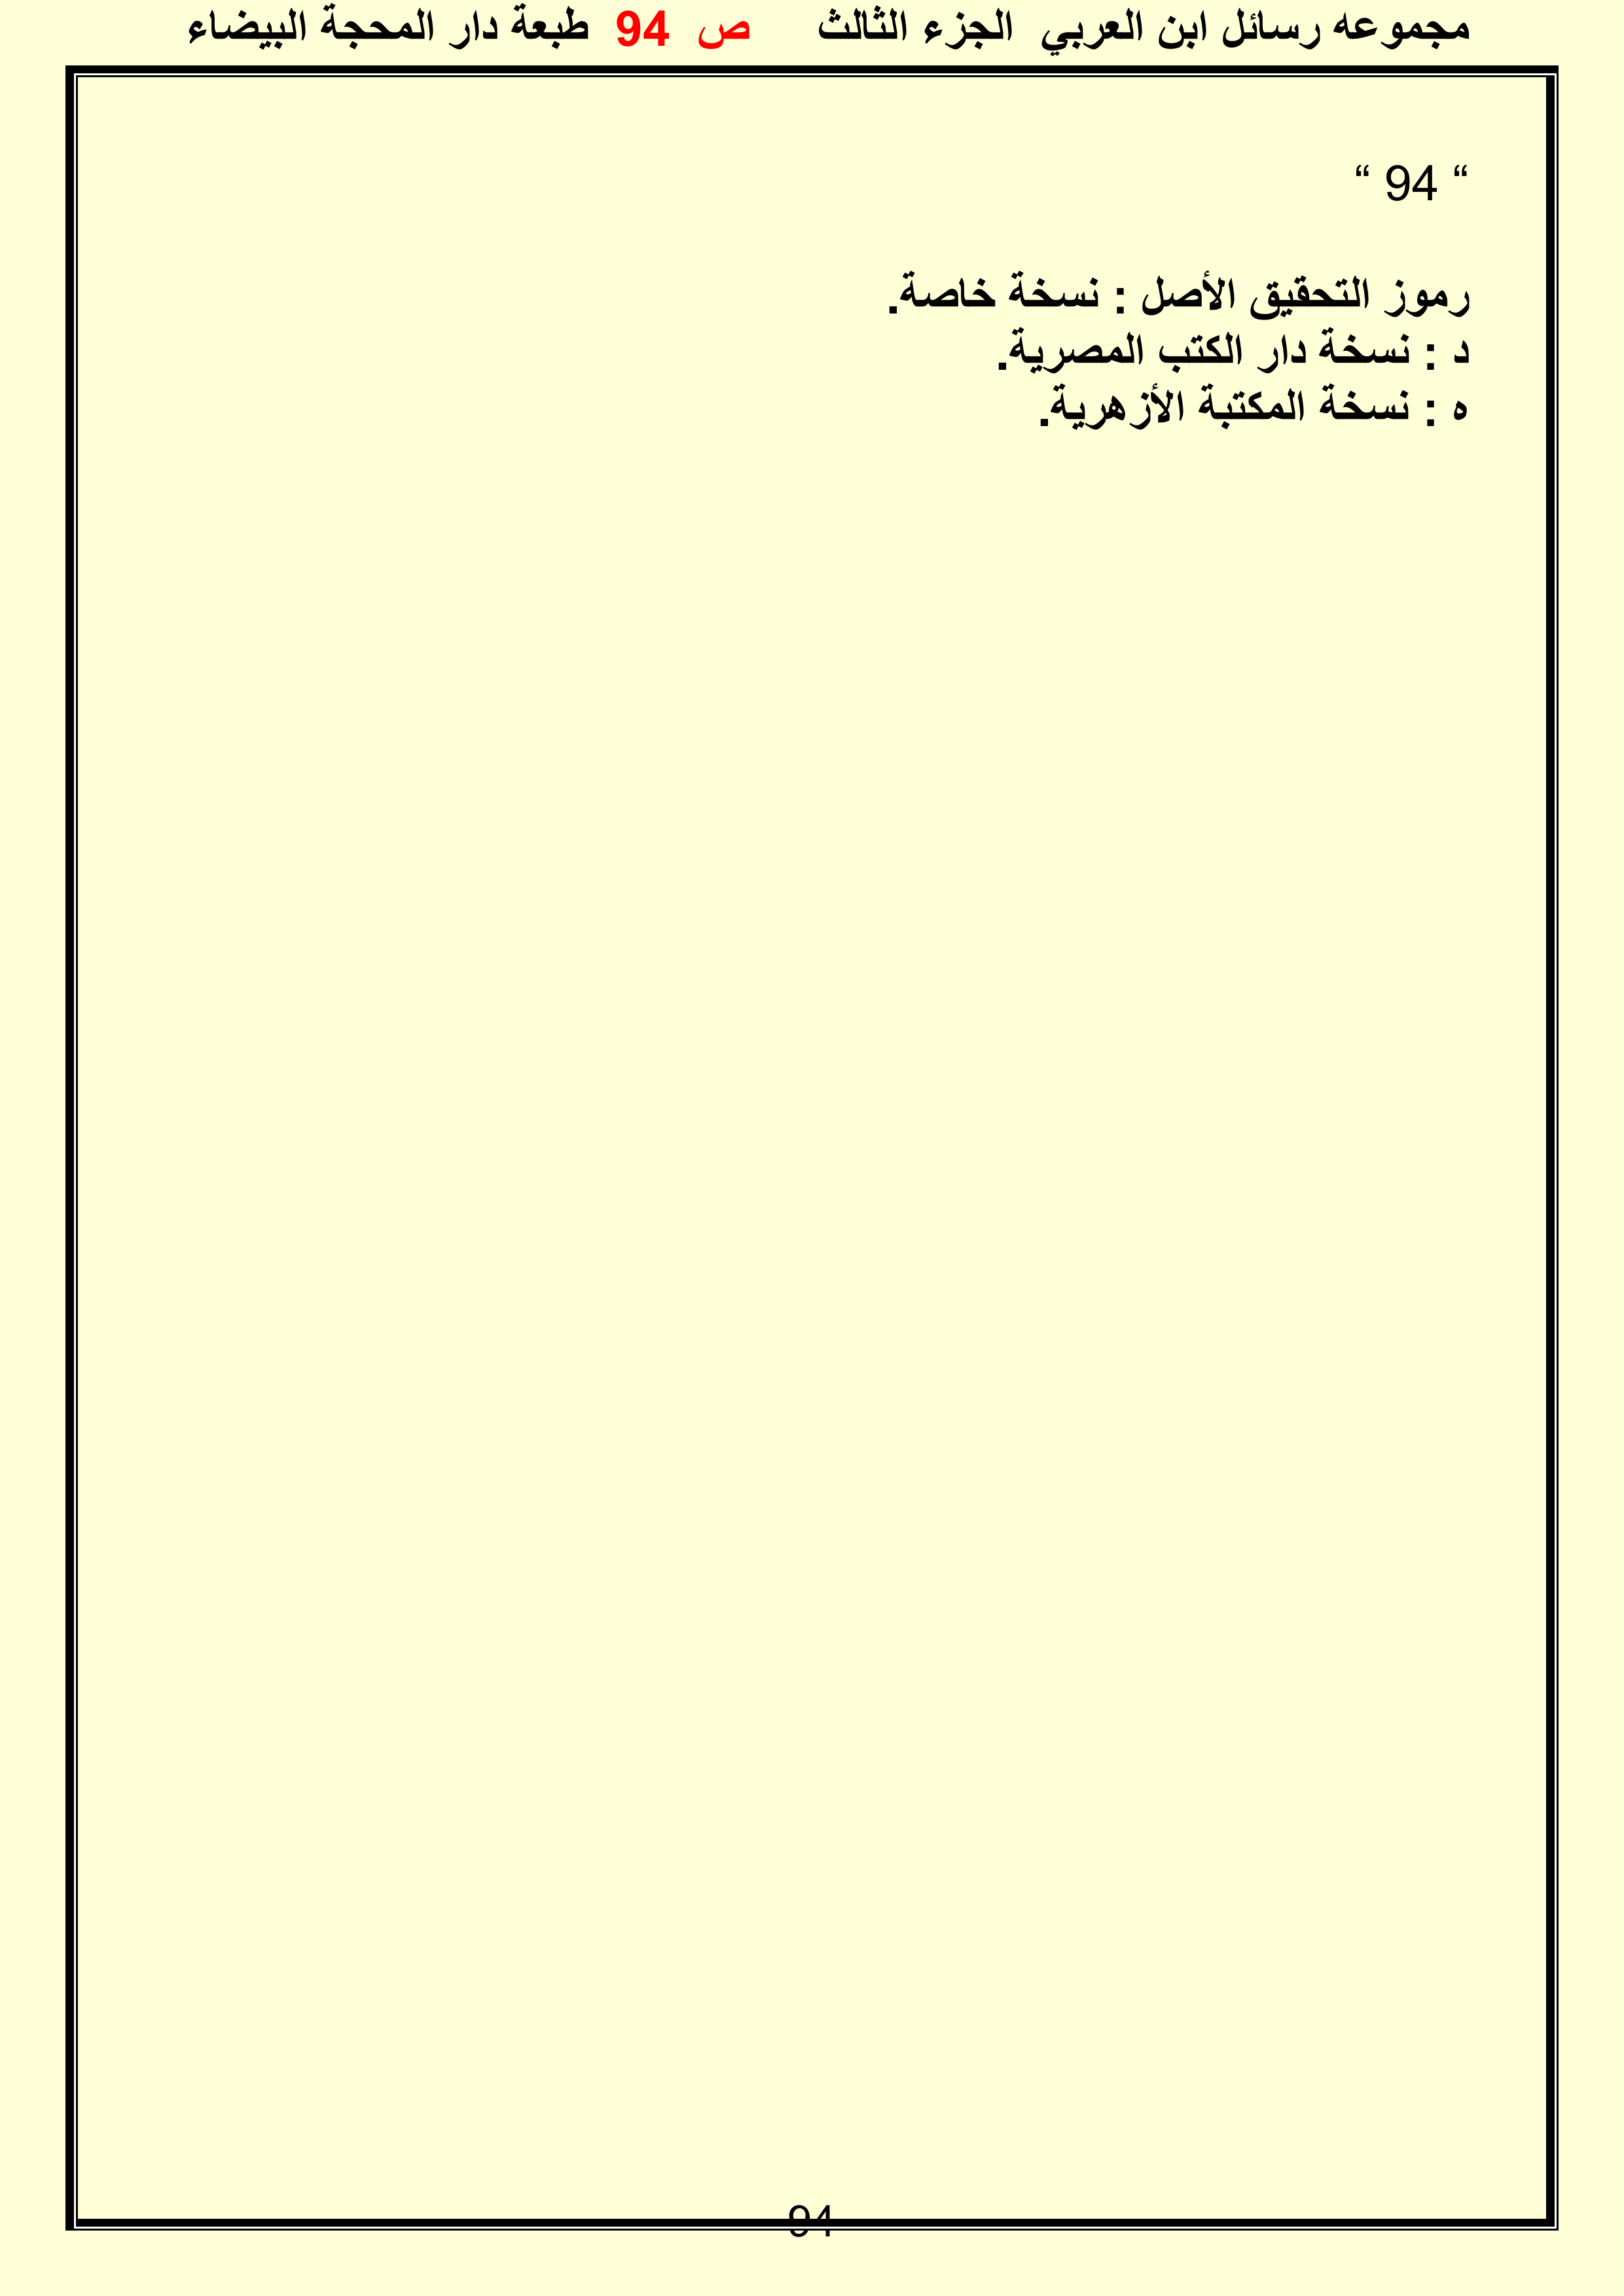 مجموعه رسائل ابن العربي الجزء الثالث ص 94 طبعة دار المحجة البيضاء
“ 94 “
رموز التحقيق الأصل : نسخة خاصة.
د : نسخة دار الكتب المصرية.
ه : نسخة المكتبة الأزهرية.
94